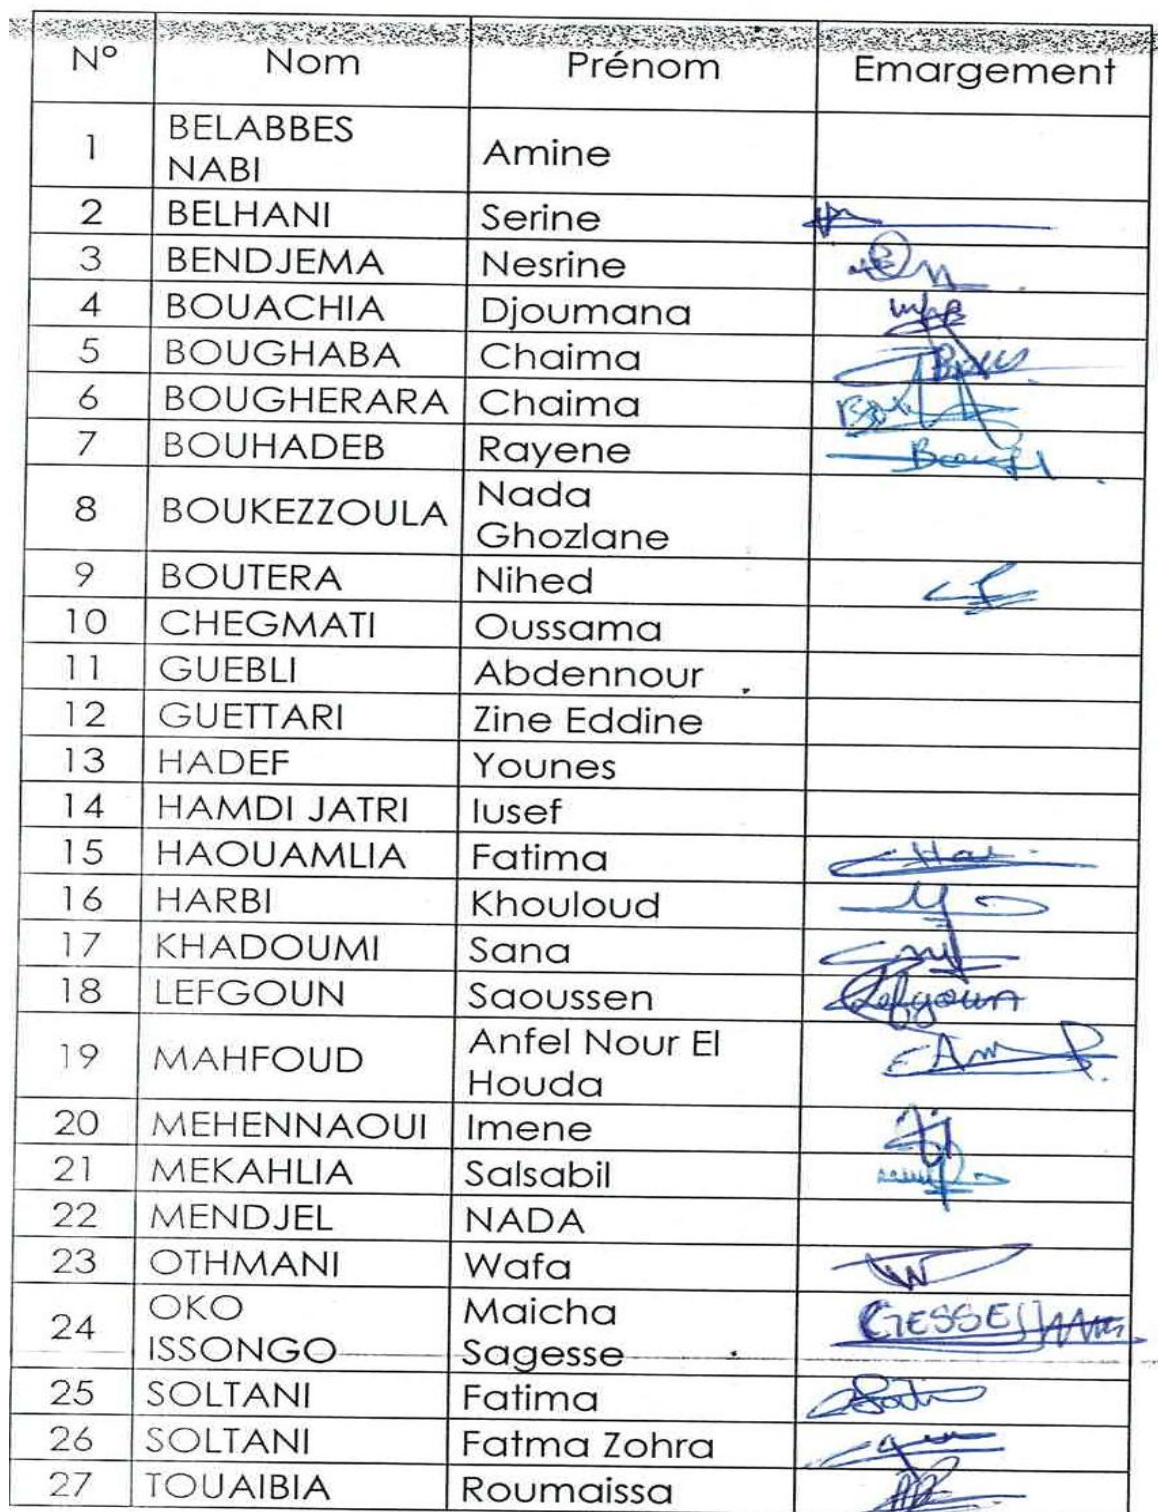 N° Nom Prénom Emargement
1 BELABBES NABI Amine
2 BELHANI Serine
3 BENDJEMA Nesrine
4 BOUACHIA Djoumana
5 BOUGHABA Chaima
6 BOUGHERARA Chaima
7 BOUHADEB Rayene
8 BOUKEZZOULA Nada Ghozlane
9 BOUTERA Nihed
10 CHEGMATI Oussama
11 GUEBLI Abdennour
12 GUETTARI Zine Eddine
13 HADEF Younes
14 HAMDI JATRI Iusef
15 HAOUAMLIA Fatima
16 HARBI Khouloud
17 KHADOUMI Sana
18 LEFGOUN Saoussen Lefgoun
19 MAHFOUD Anfel Nour El Houda
20 MEHENNAOUI Imene
21 MEKAHLIA Salsabil
22 MENDJEL NADA
23 OTHMANI Wafa
24 OKO ISSONGO Maicha Sagesse
25 SOLTANI Fatima
26 SOLTANI Fatma Zohra
27 TOUAIBIA Roumaissa